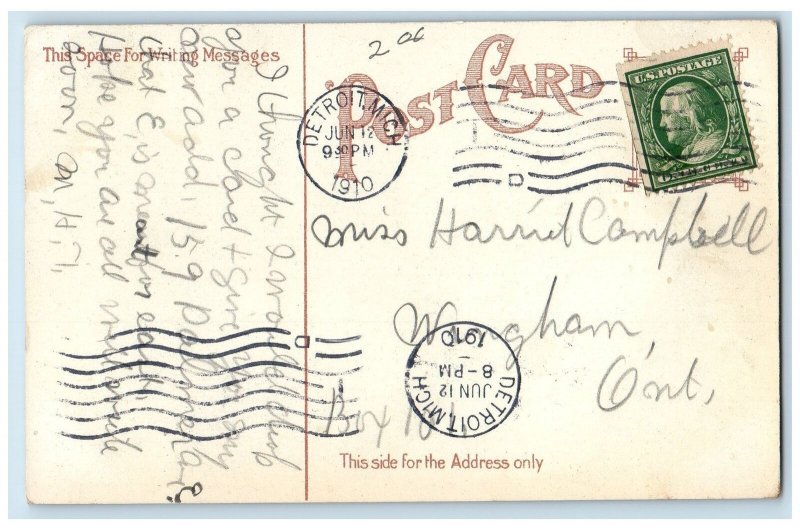 This Space For Writing Messages
2 00
POST CARD
DETROIT, MICH.
JUN 12
9 30 PM
1910
U.S. POSTAGE
I thought I would
you a card & give you my
own add, 159 Palmer ave
that E, is meant for east,
Hope you are all well write
soon,
Miss Harriet Campbell
Wingham,
Ont,
Box
DETROIT, MICH.
JUN 12
8-PM
1910
D
D
This side for the Address only